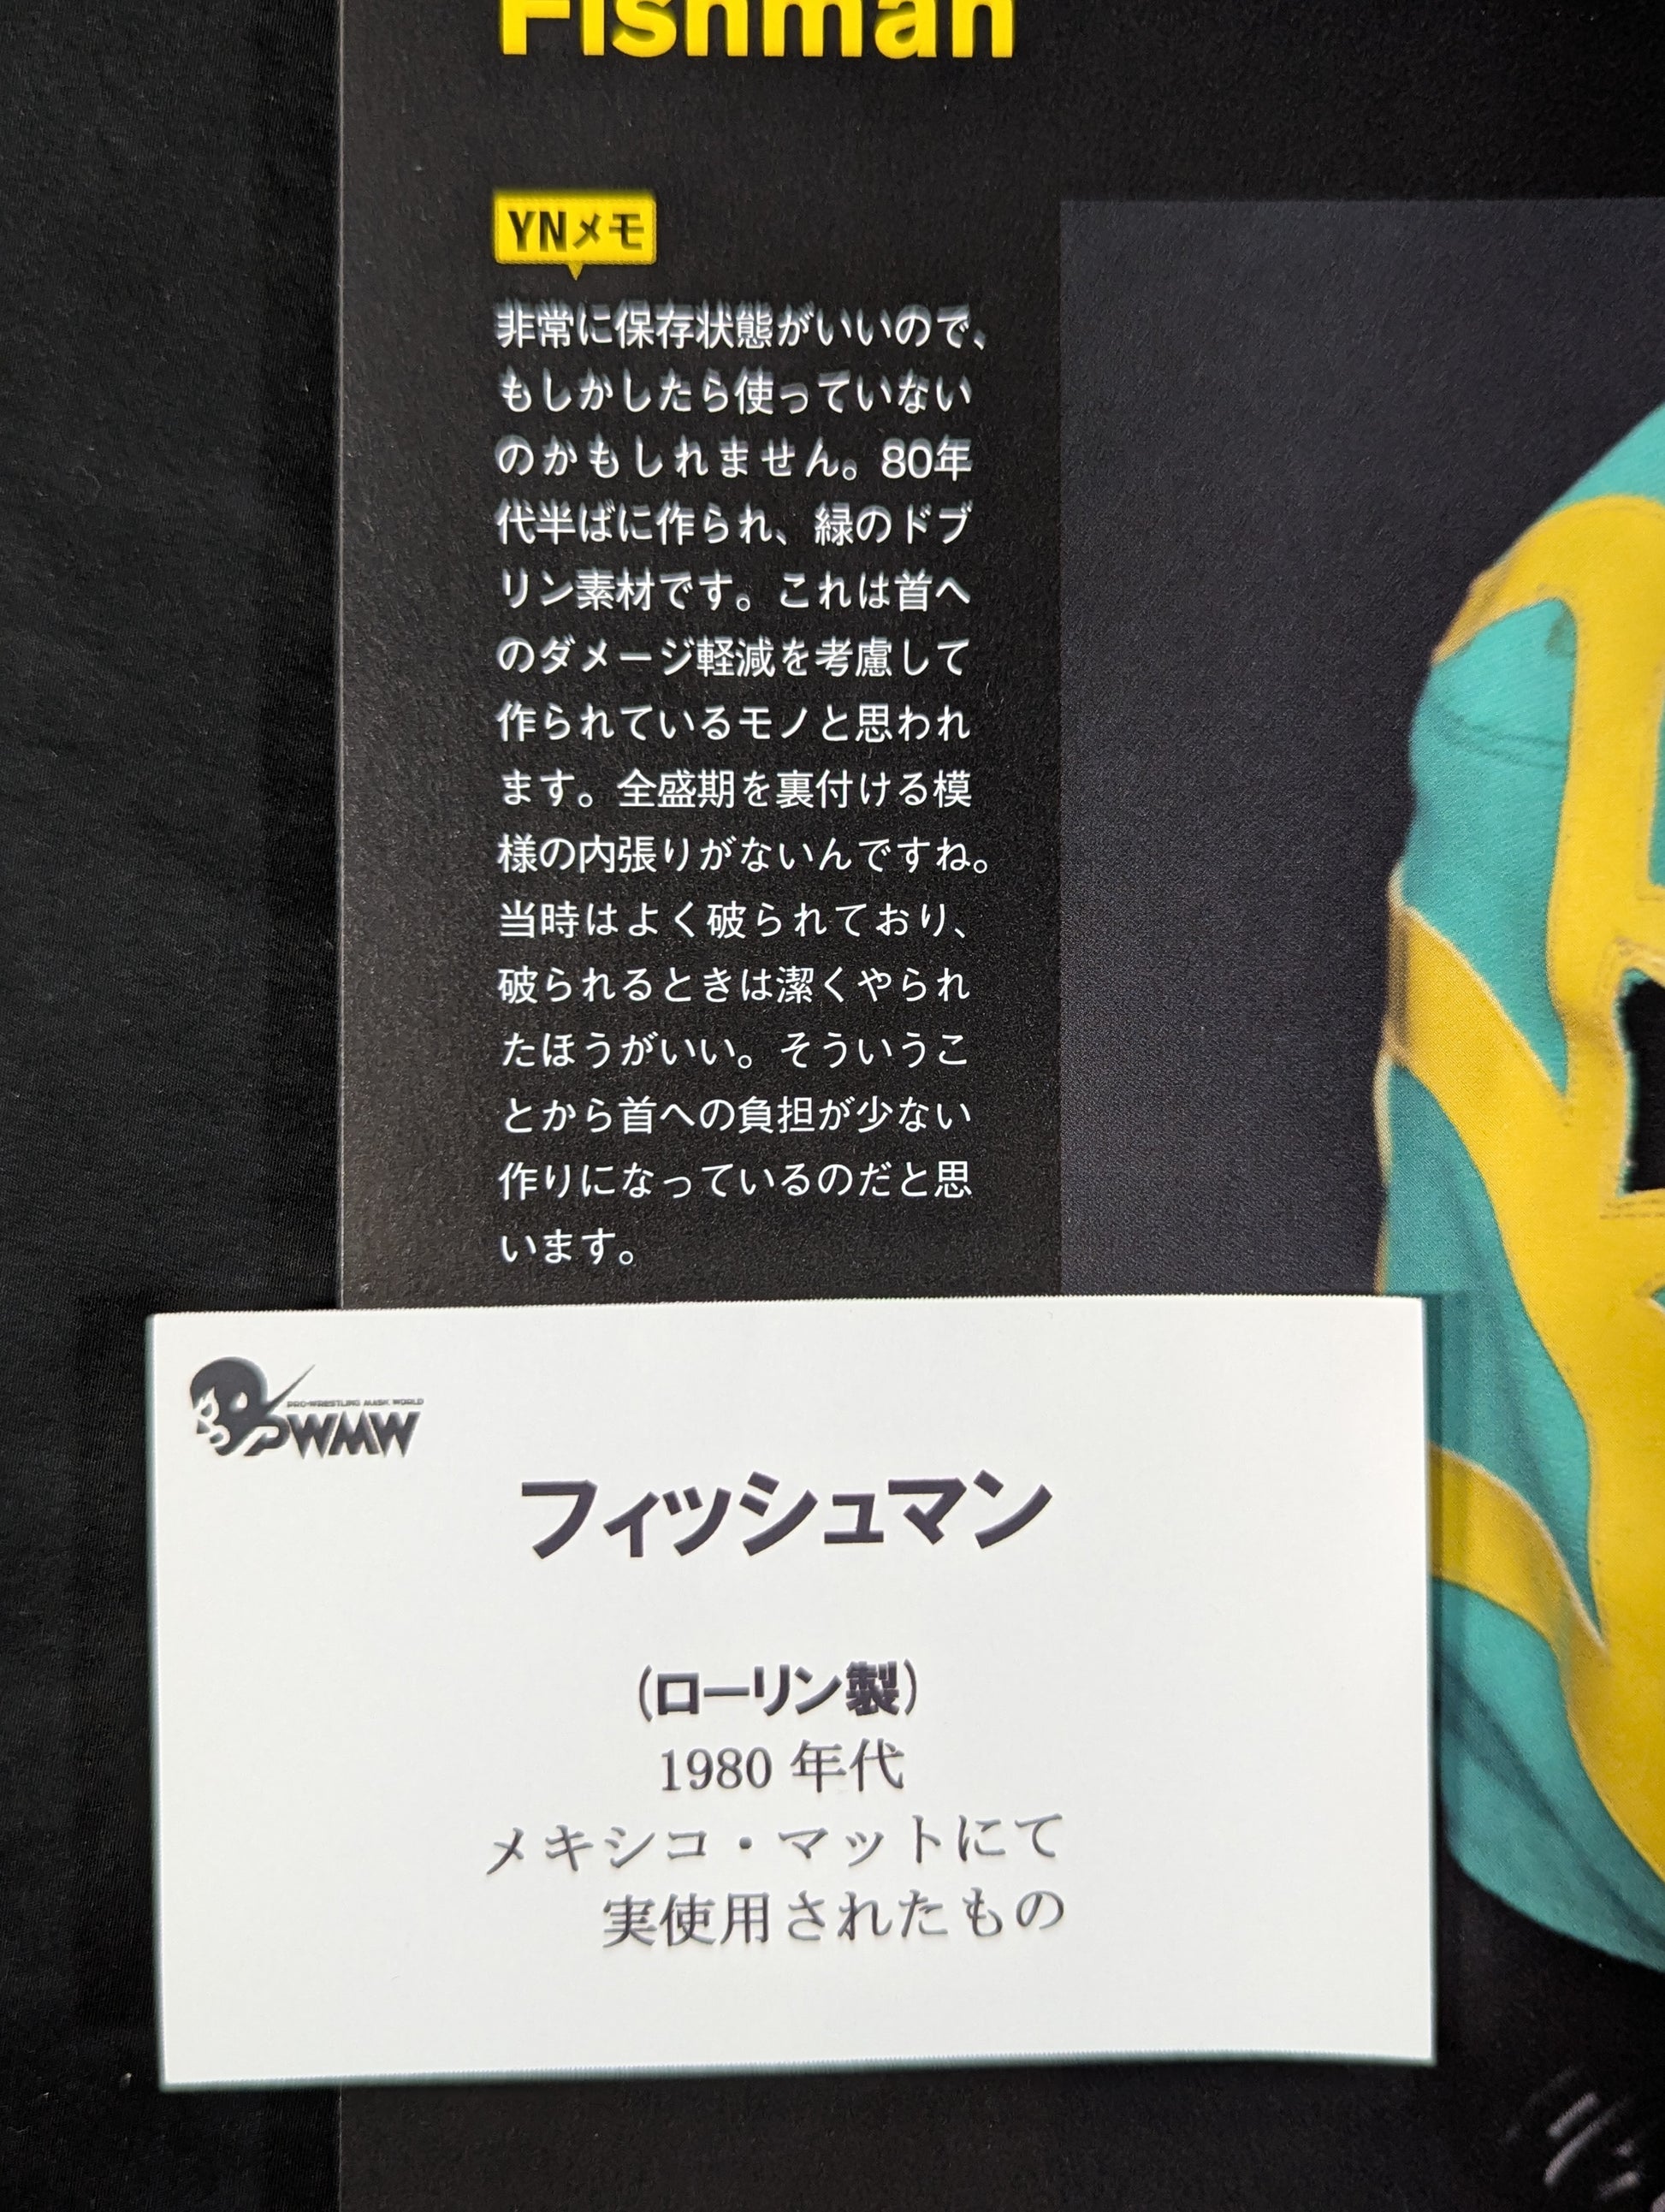 Fishman
YNメモ
非常に保存状態がいいので、
もしかしたら使っていない
のかもしれません。80年
代半ばに作られ、緑のドブ
リン素材です。これは首へ
のダメージ軽減を考慮して
作られているモノと思われ
ます。全盛期を裏付ける模
様の内張りがないんですね。
当時はよく破られており、
破られるときは潔くやられ
たほうがいい。そういうこ
とから首への負担が少ない
作りになっているのだと思
います。
PRO-WRESTLING MASK WORLD
PWMW
フィッシュマン
(ローリン製)
1980 年代
メキシコ・マットにて
実使用されたもの